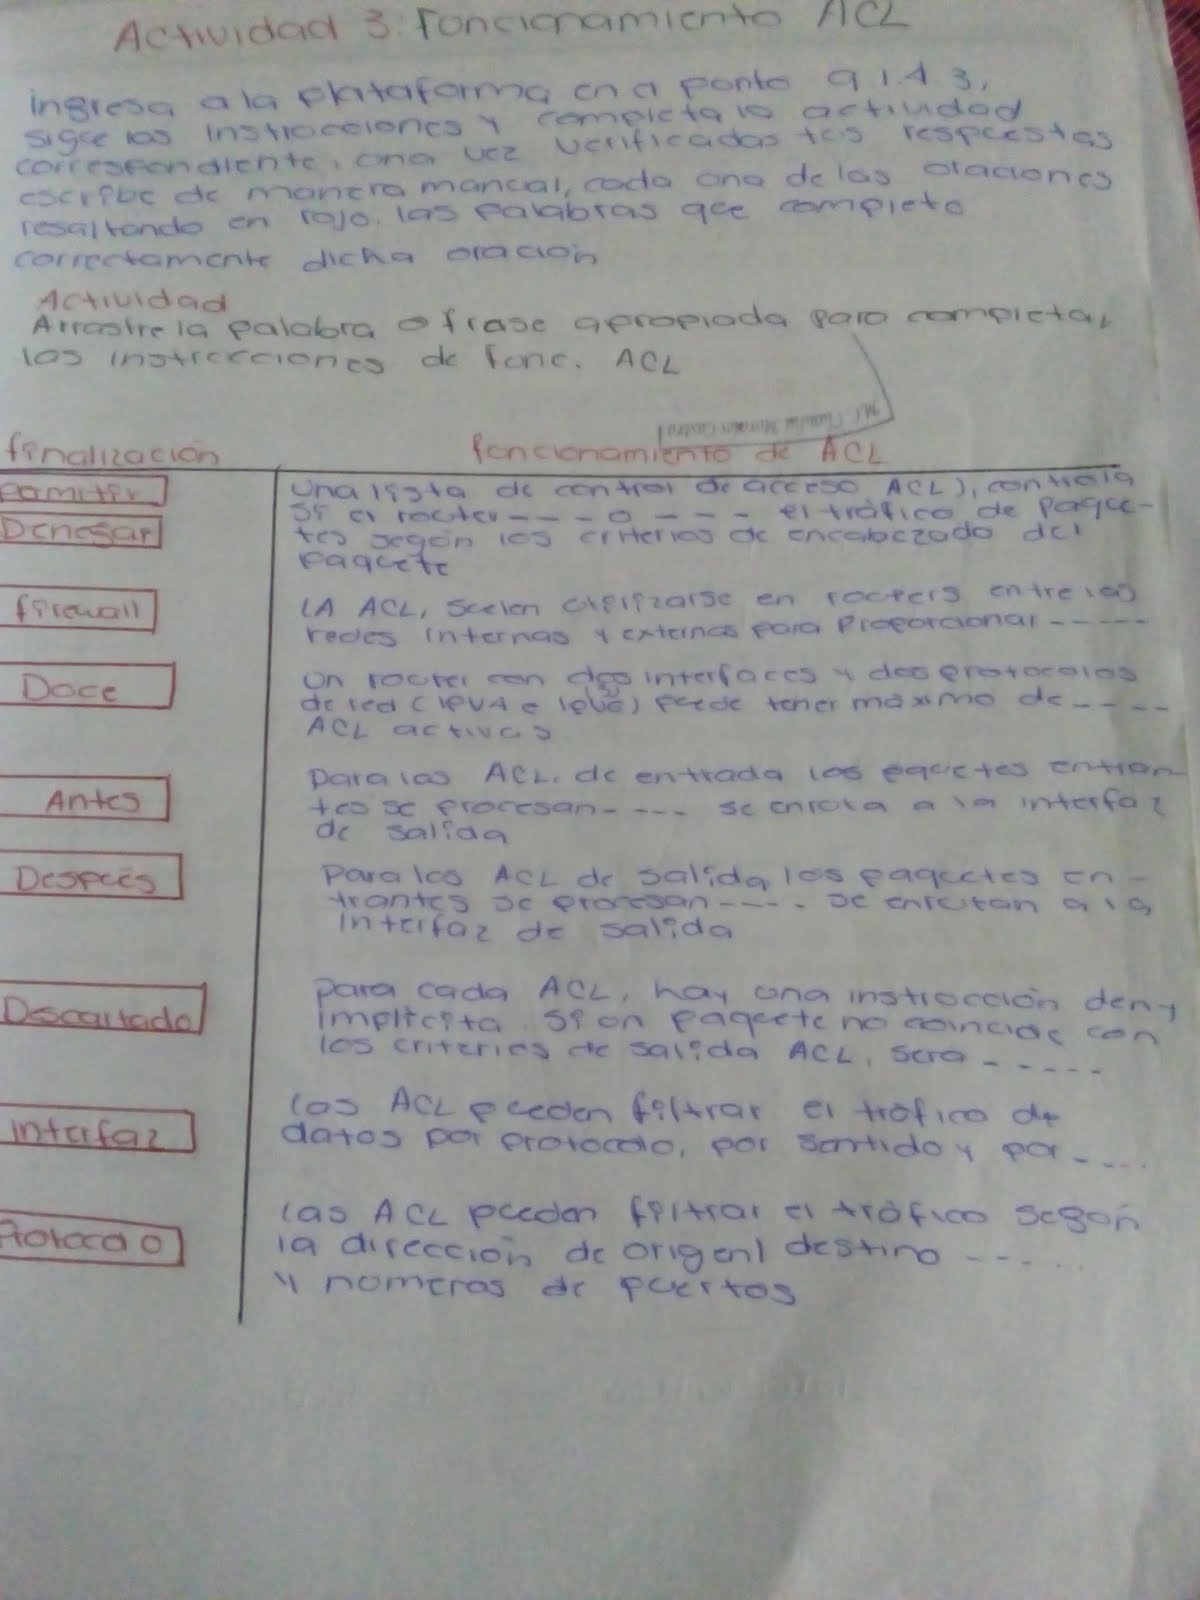 Actividad 3: Funcionamiento ACL
ingresa a la plataforma en el punto 9.1.4.3,
sigue las instrucciones y completa la actividad
correspondiente, una vez verificadas tus respuestas
escribe de manera manual, cada una de las oraciones
resaltando en rojo, las palabras que completo
correctamente dicha oración
Actividad
Arrastre la palabra o frase apropiada para completar
las instrucciones de func. ACL
Mi. Claudia Morales Castro
finalización
funcionamiento de ACL
Permitir
Denegar
Una lista de control de acceso ACL), controla
si el router---- o ---- el tráfico de paque-
tes según los criterios de encabezado del
paquete
firewall
LA ACL, suelen utilizarse en routers entre las
redes internas y externas para proporcional -----
Doce
Un router con dos interfaces y dos protocolos
de red (IPV4 e IPV6) puede tener máximo de----
ACL activas
Antes
Para las ACL. de entrada los paquetes entran
tes se procesan---- se enruta a la interfaz
de salida
Después
Para los ACL de salida, los paquetes en-
trantes se procesan----. se enrutan a la
interfaz de salida
Descartado
Para cada ACL, hay una instrucción deny
implícita. Si un paquete no coincide con
los criterios de salida ACL, será -----
interfaz
Los ACL pueden filtrar el tráfico de
datos por protocolo, por sentido y por ----
Protocolo
Las ACL pueden filtrar el tráfico según
la dirección de origen/ destino -----
y números de puertos